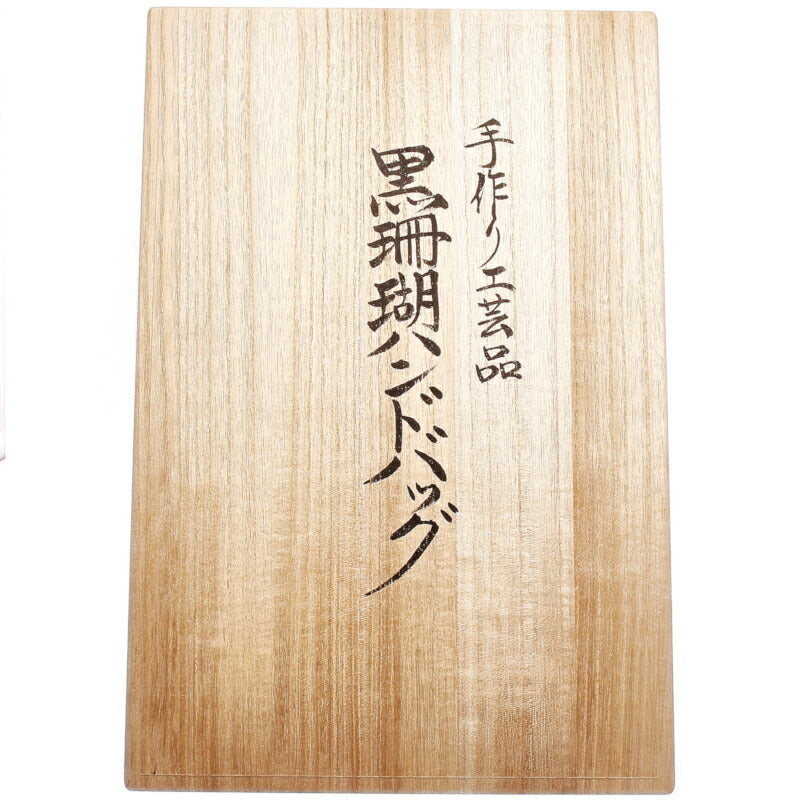 手作り工芸品
黒珊瑚ハンドバッグ